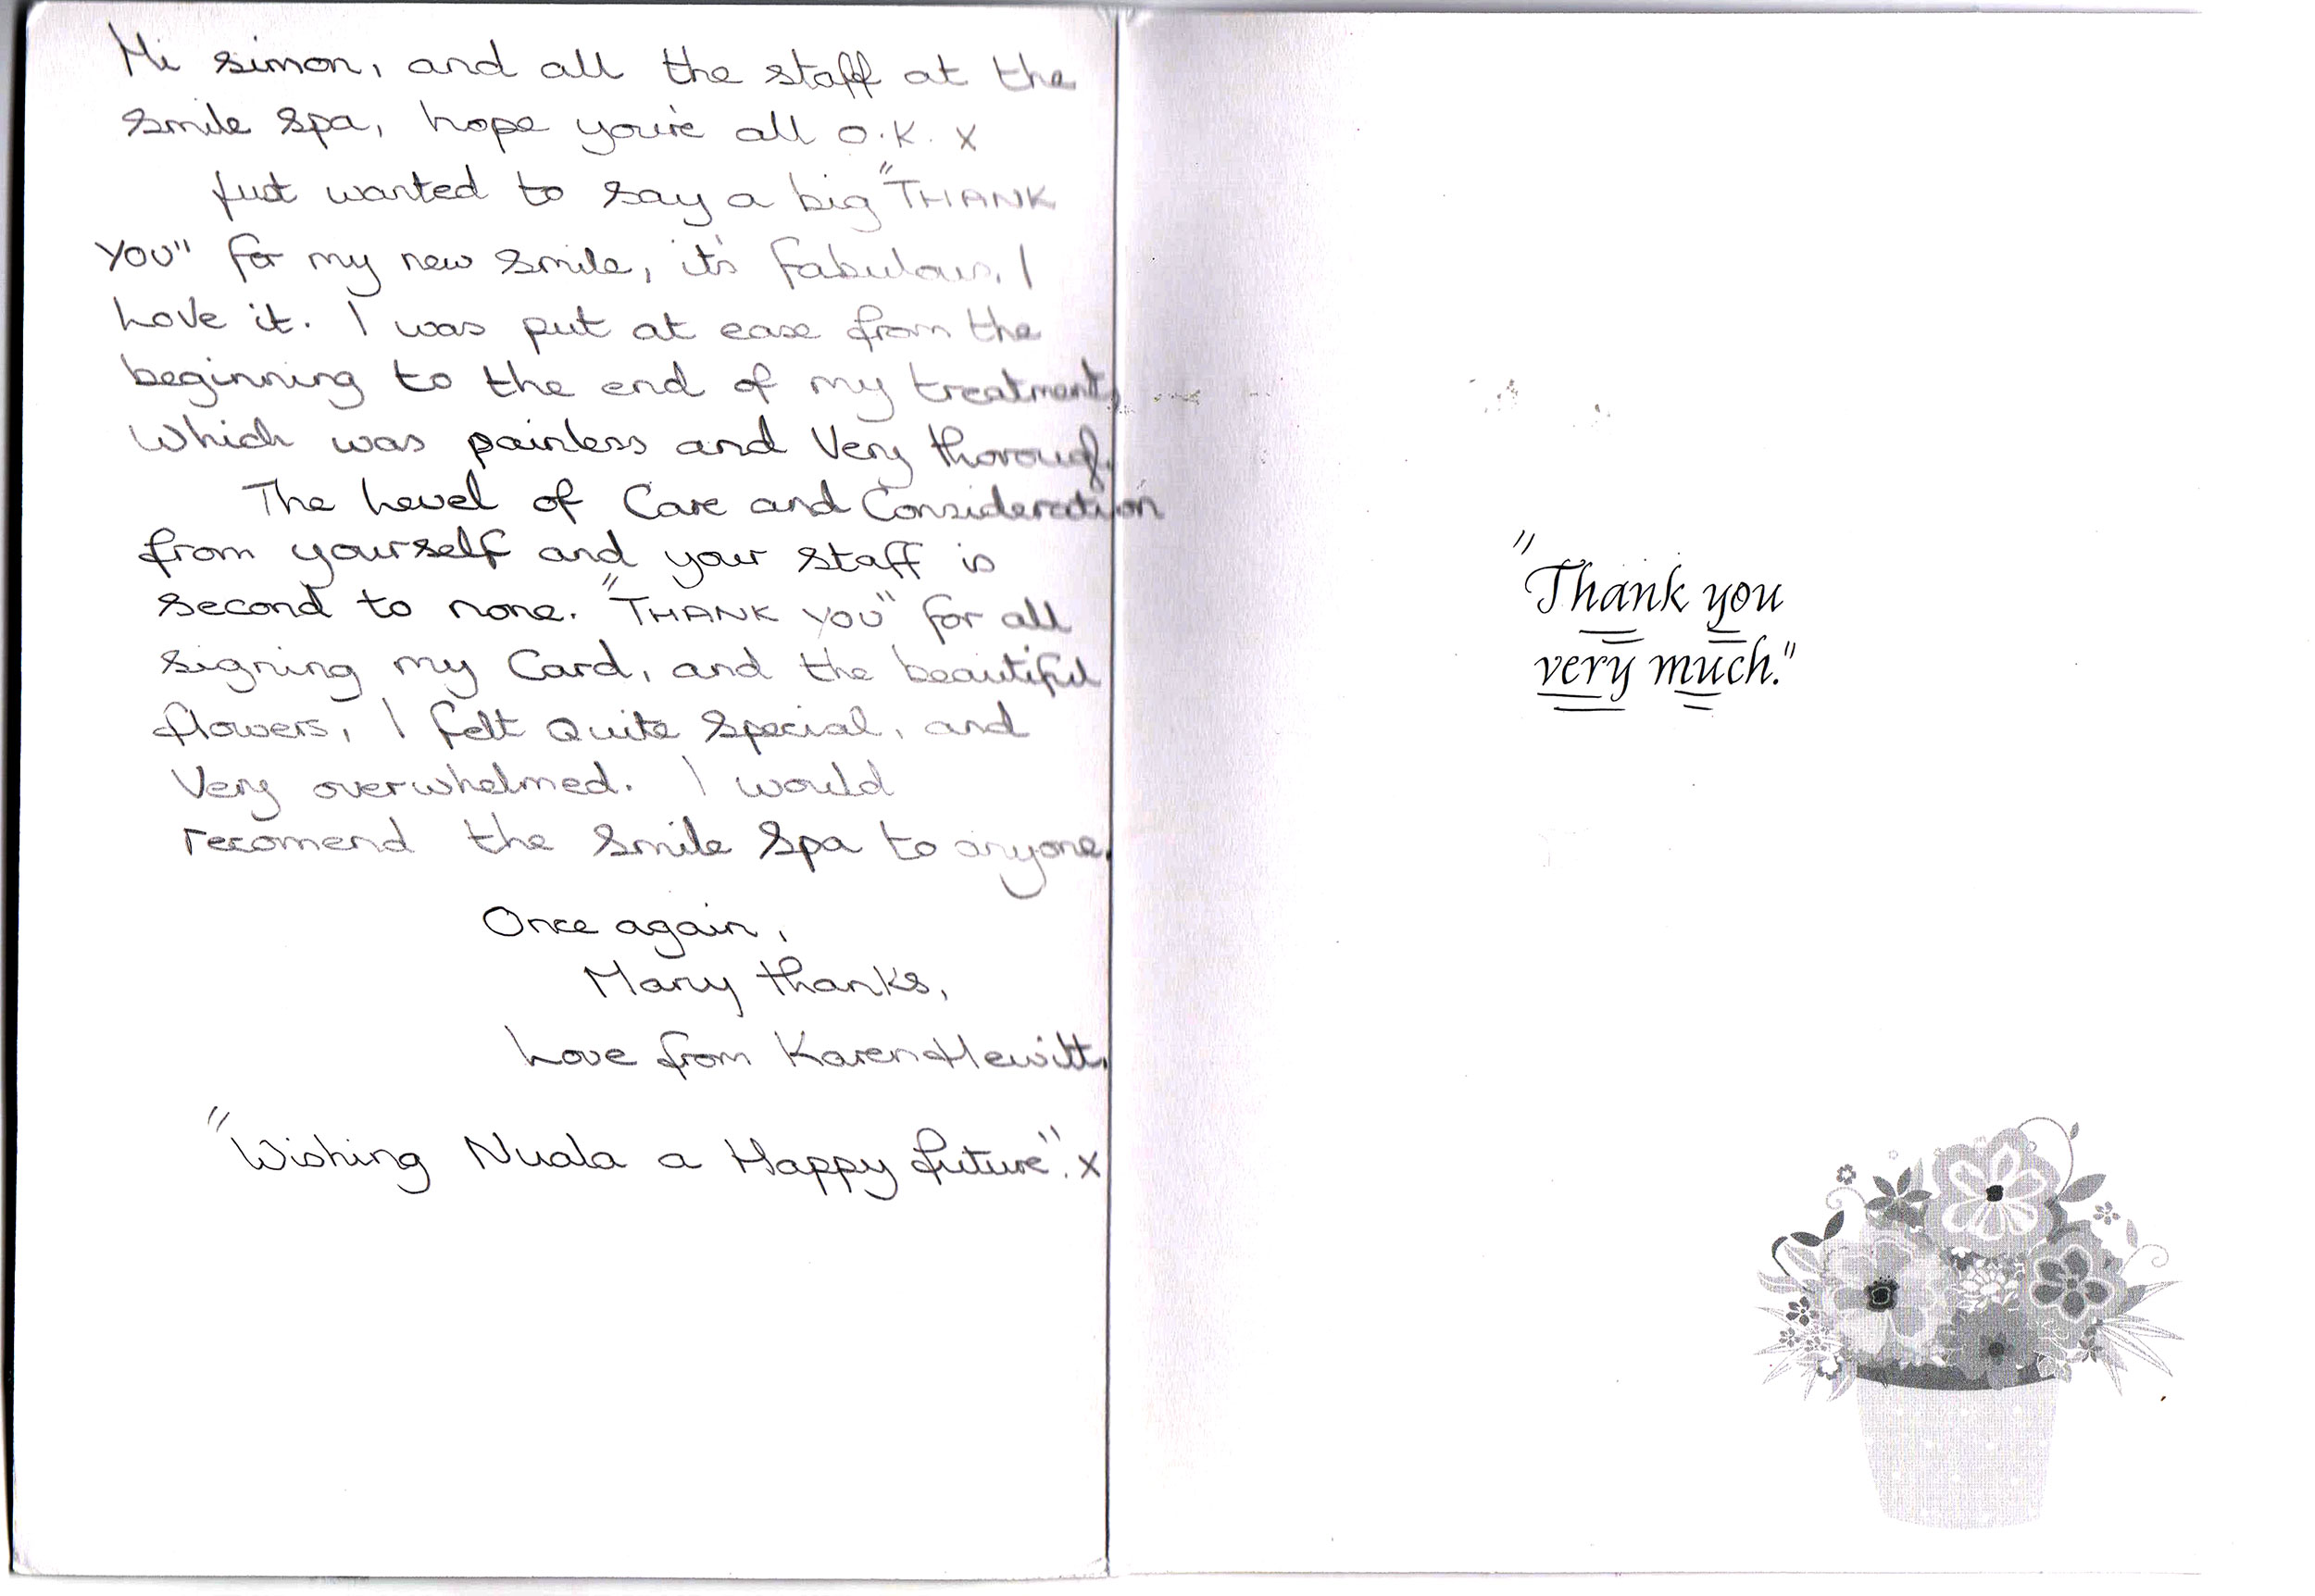 Hi simon, and all the staff at the
smile spa, hope you're all O.K. x
Just wanted to say a big "THANK
YOU" for my new smile, it's fabulous, I
Love it. I was put at ease from the
beginning to the end of my treatment,
Which was painless and Very thorough.
The Level of Care and Consideration
from yourself and your staff is
second to none. "THANK YOU" for all
signing my Card, and the beautiful
flowers, I felt Quite special, and
Very overwhelmed. I would
recomend the smile spa to anyone.
Once again,
Many thanks,
Love from Karen Hewitt.
"Wishing Nuala a Happy future". x
"Thank you
very much."